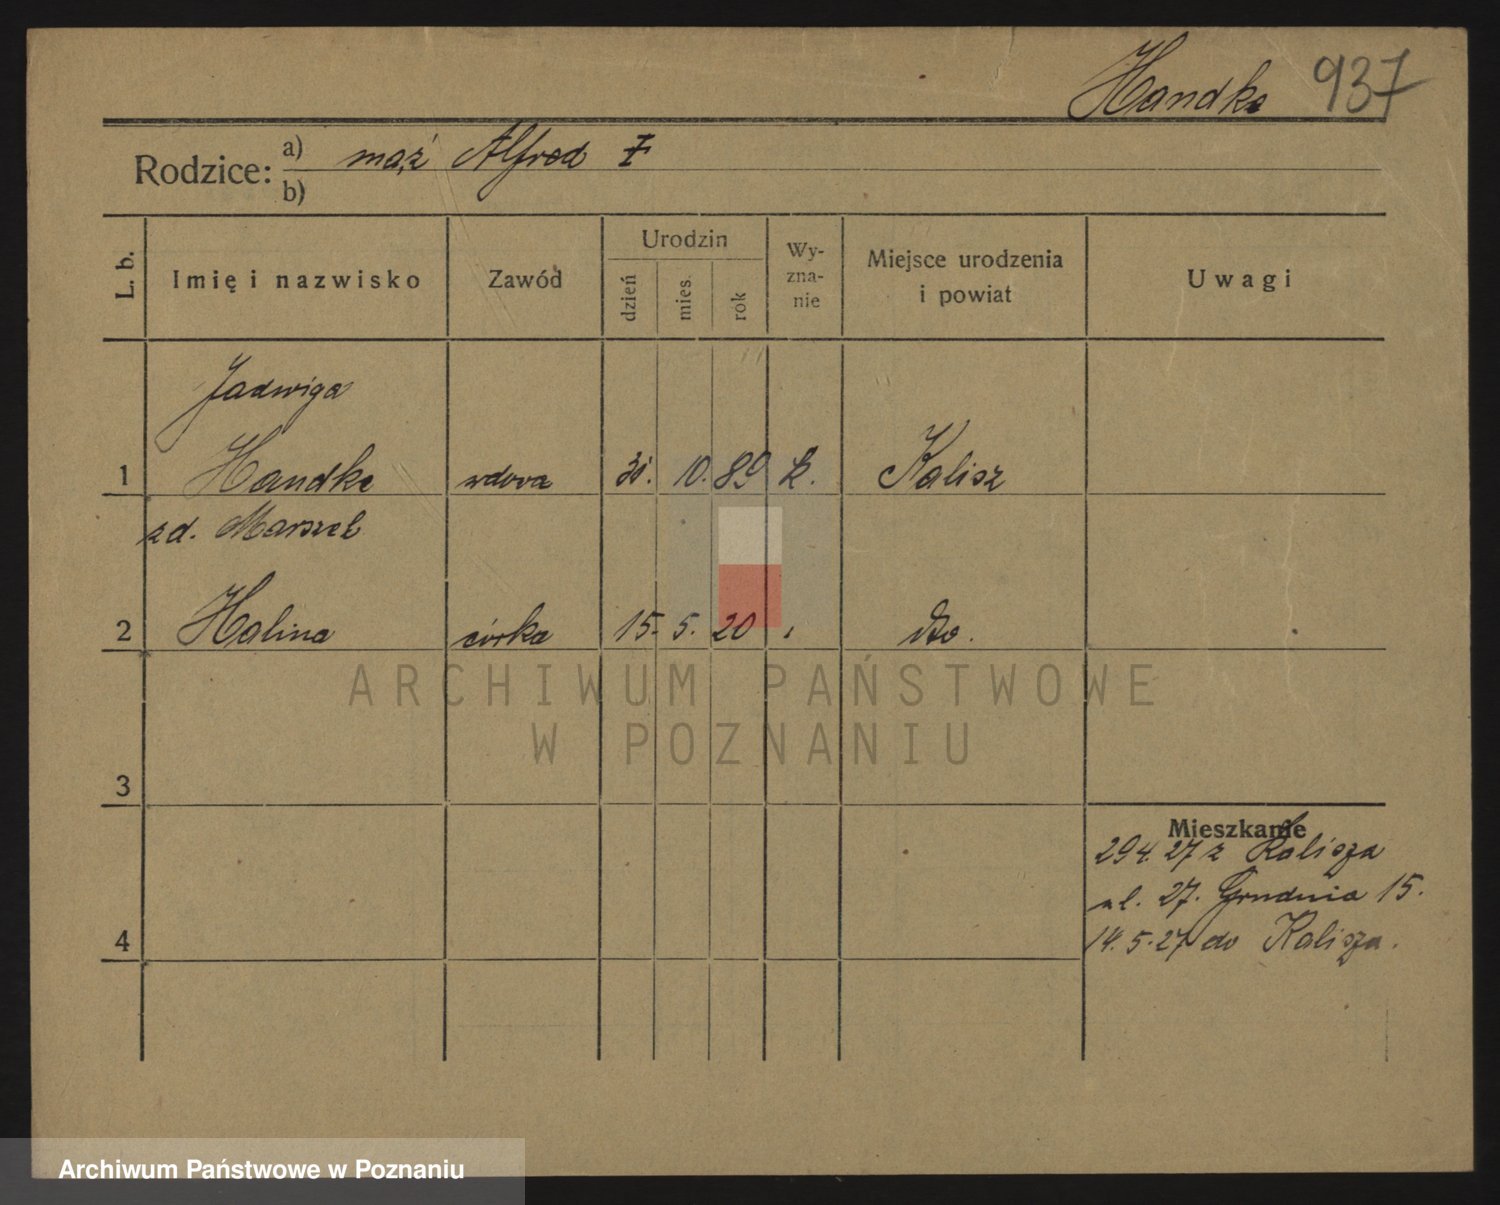 Handke 937
Rodzice: a) mąż Alfred
b)
L. b. Imię i nazwisko Zawód Urodzin dzień mies. rok Wy-zna-nie Miejsce urodzenia i powiat Uwagi
Jadwiga
1 Handke wdova 10. 89 k. Kalisz
zd. Marszel
2 Halina córka 15. 5. 20 " dto.
ARCHIWUM PAŃSTWOWE
W POZNANIU
3
Mieszkanie
29 4. 27 z Kalisza
ul. 27. Grudnia 15.
4 14. 5. 27 do Kalisza.
Archiwum Państwowe w Poznaniu